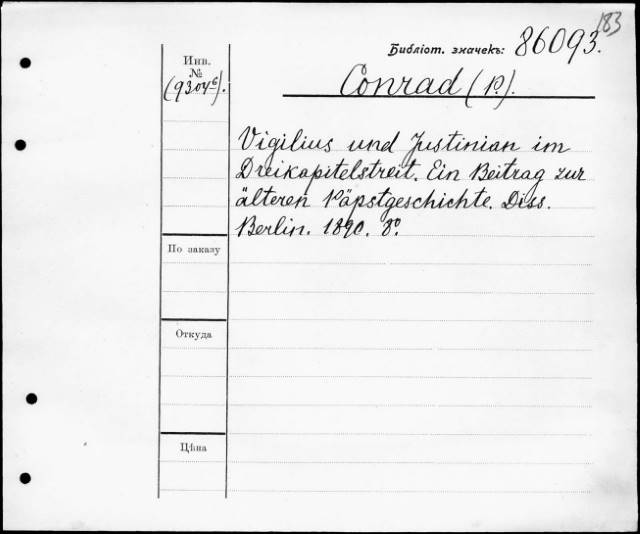 183
Библіот. значекъ: 86093.
Инв.
№
(9304⁶).
Conrad (P.).
Vigilius und Justinian im
Dreikapitelstreit. Ein Beitrag zur
älteren Päpstgeschichte. Diss.
Berlin. 1890. 8°.
По заказу
Откуда
Цѣна